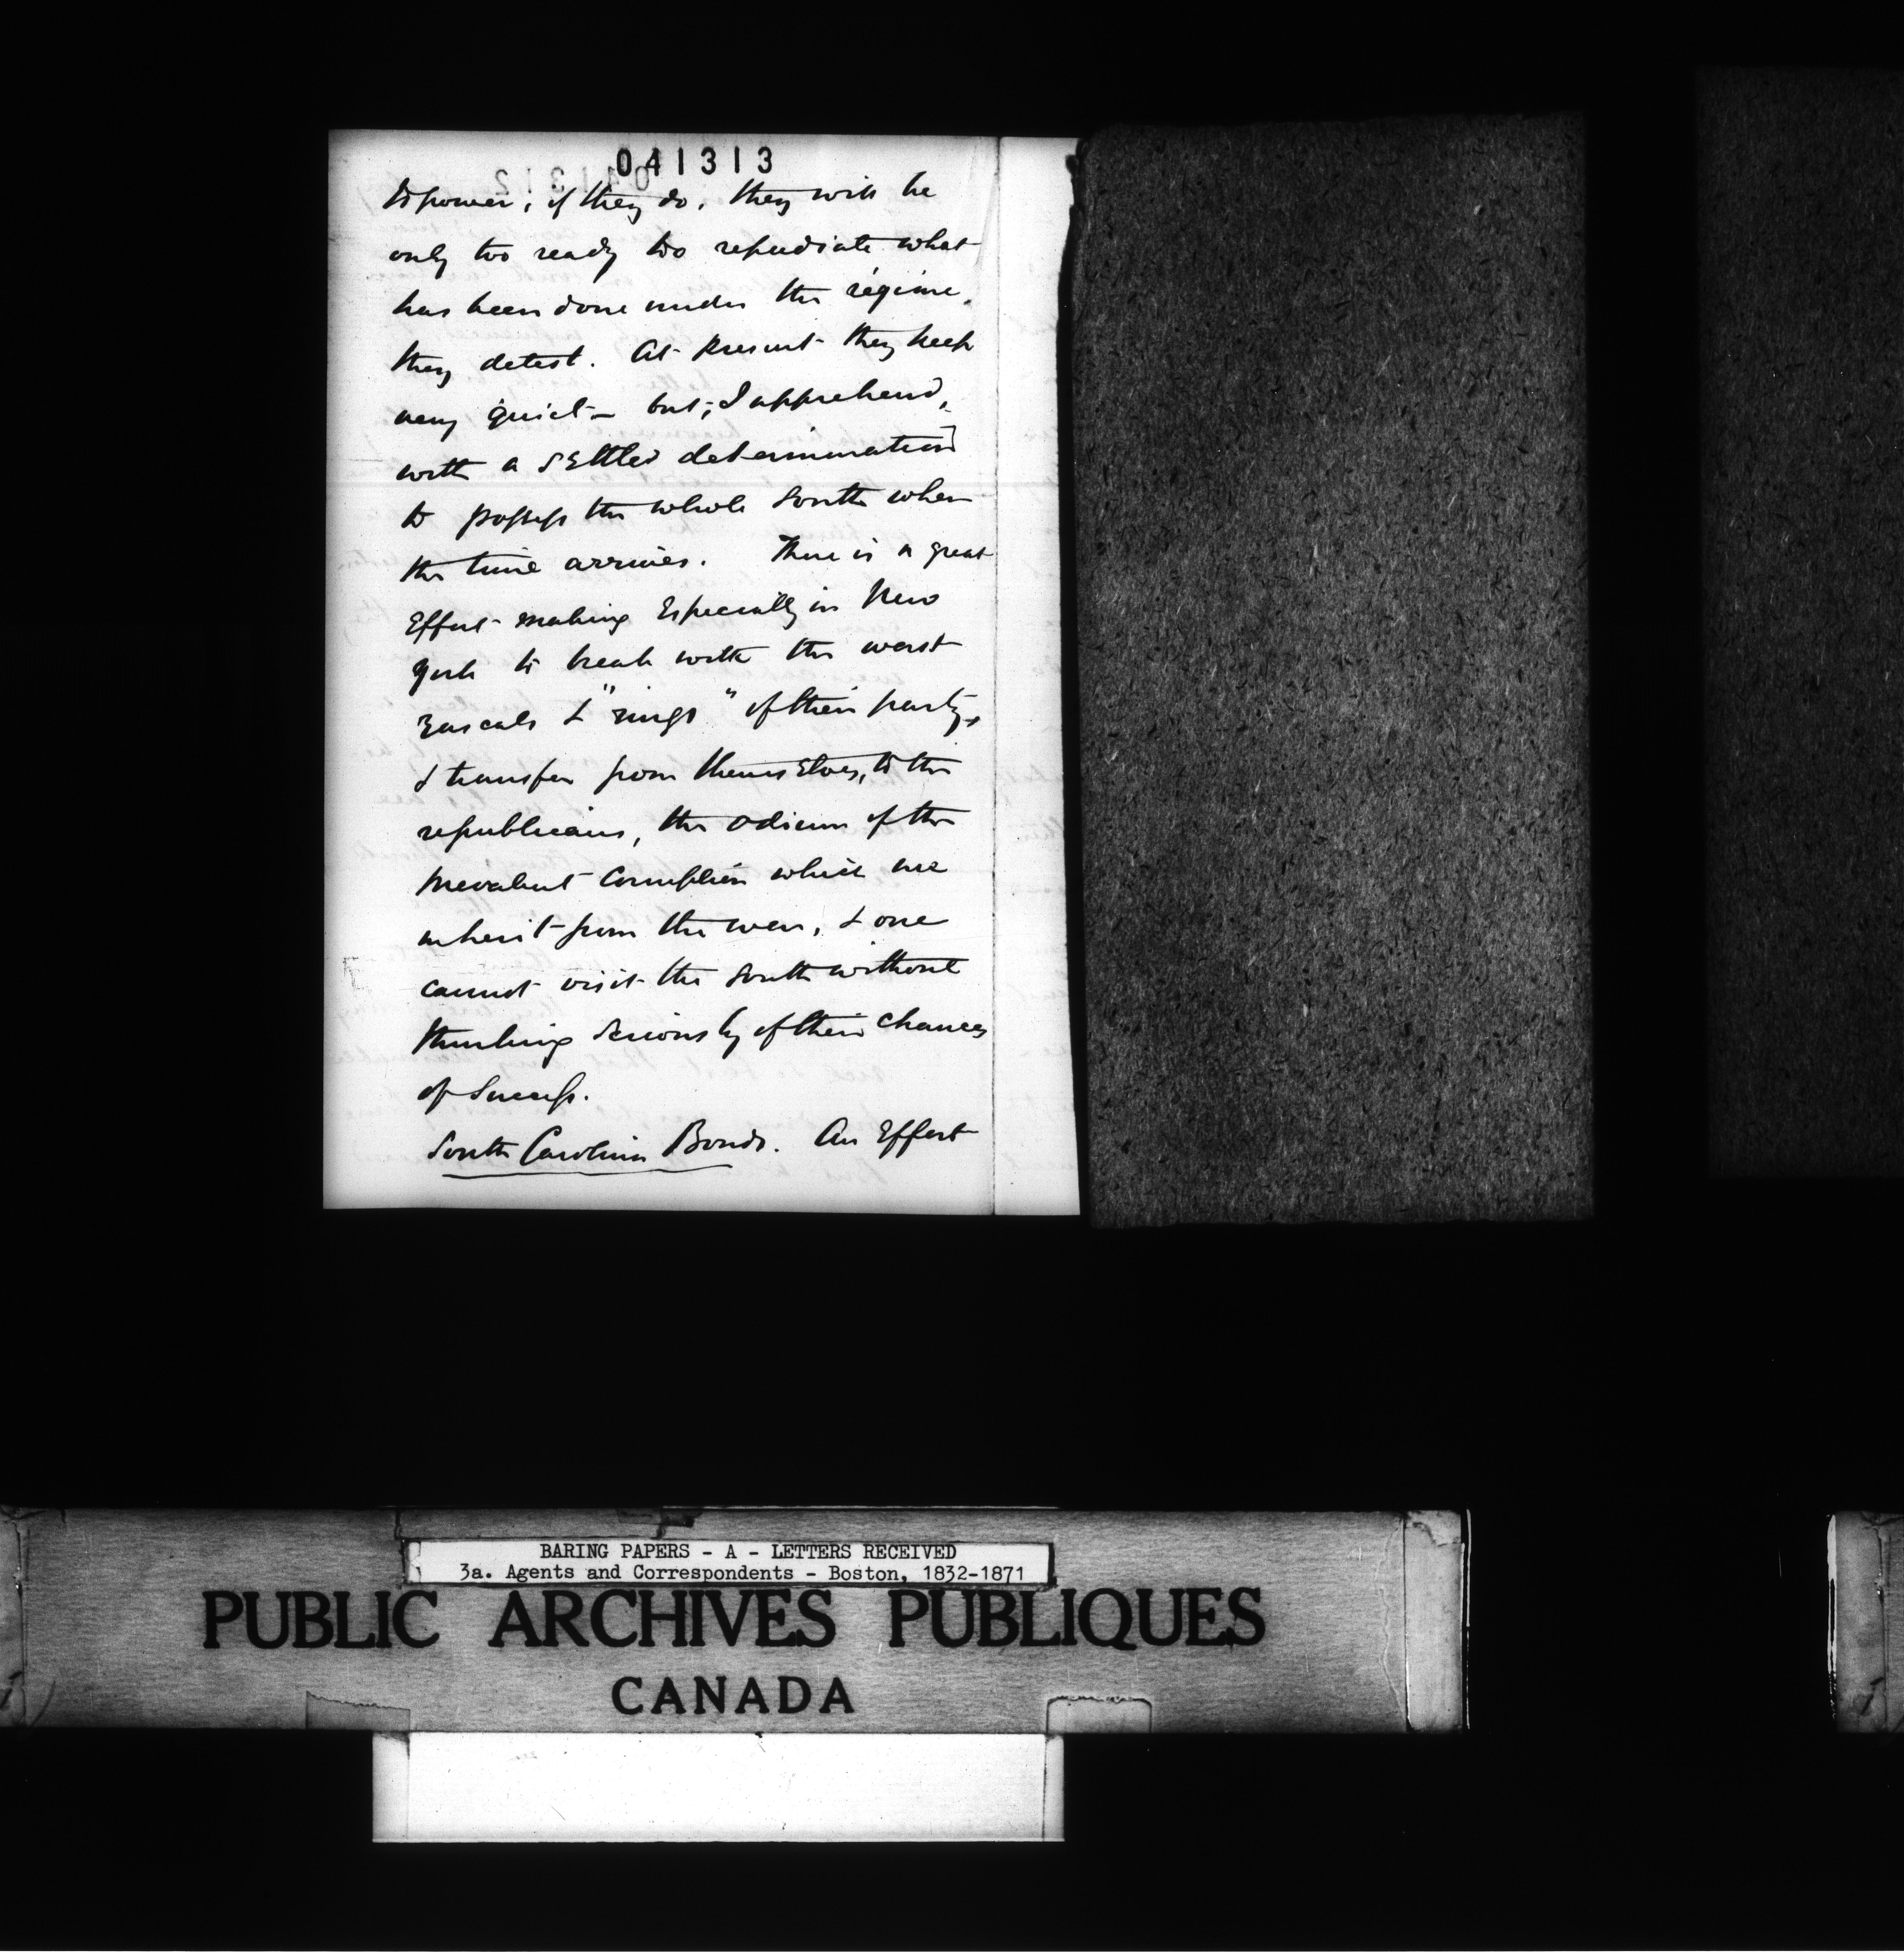 041313
to power, if they do, they will be
only too ready too repudiate what
has been done under the régime,
they detest. At present they keep
very quiet – but, I apprehend,
with a settled determination
to possess the whole South when
the time arrives. There is a great
effort making especially in New
York to break with the worst
rascals & "rings" of their party,
& transfer from themselves, to the
republicans, the odium of the
prevalent corruption which we
inherit from the war, & one
cannot visit the South without
thinking seriously of their chances
of success.
South Carolina Bonds. An effort
BARING PAPERS - A - LETTERS RECEIVED
3a. Agents and Correspondents - Boston, 1832-1871
PUBLIC ARCHIVES PUBLIQUES
CANADA